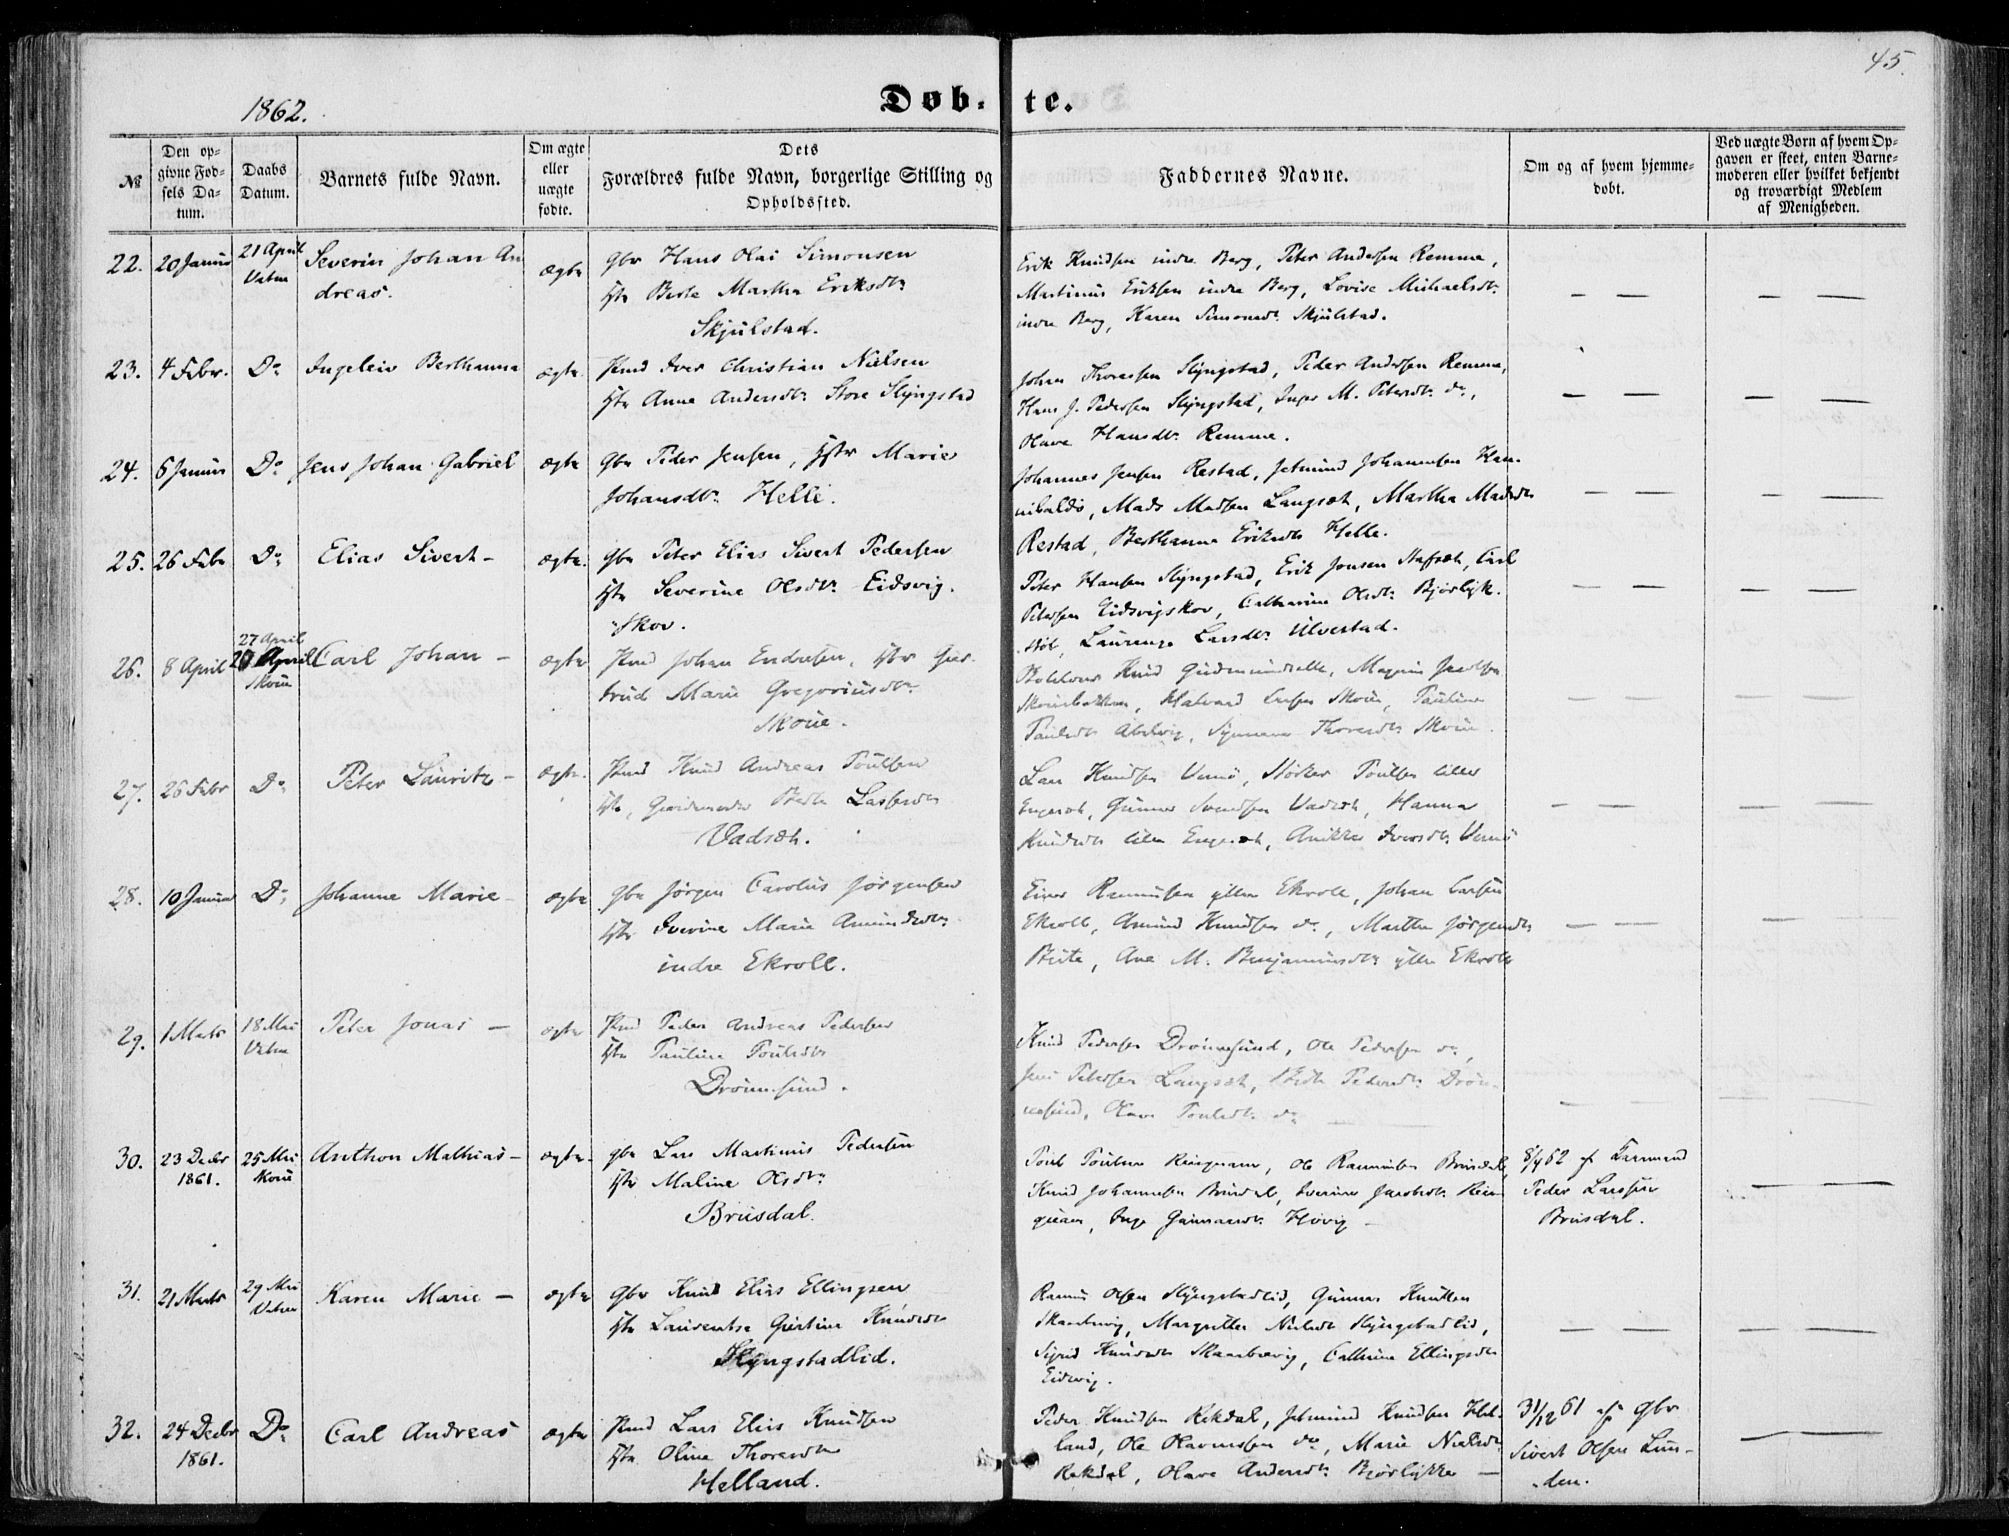 45.
1862.
Døb- te.
№
Den op-
givne Fød-
sels Da-
tum.
Daabs
Datum.
Barnets fulde Navn.
Om ægte
eller
uægte
fødte.
Dets
Forældres fulde Navn, borgerlige Stilling og
Opholdssted.
Faddernes Navne.
Om og af hvem hjemme-
døbt.
Ved uægte Børn af hvem Op-
gaven er skeet, enten Barne-
moderen eller hvilket bekjendt
og troværdigt Medlem
af Menigheden.
22. 20 Januar 21 April Vatne Severin Johan An
dreas. ægte
Gbr Hans Olai Simonsen
Hstr Berte Martha Eriksdtr
Skjulstad.
Erik Knudsen indre Berg, Peter Andersen Remme,
Martinus Eriksen indre Berg, Lovise Michaelsdtr
indre Berg, Karen Simonsdtr Skjulstad.
23. 4 Febr. Do Ingeleiv Berthanna ægte
Iver Christian Nielsen
Hstr Anne Andersdtr Store Slyngstad
Johan Thoresen Slyngstad, Peder Andersen Remme,
Hans J. Pedersen Slyngstad, Inger M. Petersdtr do,
Olave Hansdtr Remme.
24. 6 Januar Do Jens Johan Gabriel ægte
Gbr Peder Jensen, Hstr Marie
Johansdtr Helle.
Johannes Jensen Restad, Jetmund Johannesen Han-
nibalds, Mads Madsen Langsæt, Martha Madsdtr
Restad, Berthanna Eriksdtr Helle.
25. 26 Febr Do Elias Sivert - ægte.
Gbr Peter Elias Sivert Pedersen
Hstr Severine Olsdtr Eidsvig-
skov.
Peter Hansen Slyngstad, Erik Jonsen Carl
Petersen Eidsvigskov, Cathrine Olsdtr Bjørlyk-
Laurense Larsdtr Ulvestad.
26. 8 April 27 April Skoue Carl Johan - ægte
Johan Endresen, Hstr Gjer-
trud Marie Gregoriusdtr
Skoue.
Knud Magnus
Halvard Skoue, Pauline
Paulsdtr Synneve Thoresdtr Skoue.
27. 26 Febr Do Peter Lauritz - ægte.
Knud Andreas Poulsen
Hstr, Berte Lassesdtr
Vadsæt.
Lars Knudsen Størker Poulsen lille
Engesæt, Gunner Svendsen Vadsæt, Hanna
Knudsdtr lille Engesæt, Iversdtr
28. 10 Januar Do Johanne Marie - ægte
Gbr Jørgen Carolus Jørgensen
Hstr Iverine Marie Amundsdtr
indre Ekroll.
Einer Rasmusen ytter Ekroll, Johan Larsen
Ekroll, Amund Knudsen do, Marthe Jørgensdtr
Ane M. Benjaminsdtr ytter Ekroll
29. 1 Marts 18 Mai Vatne Peter Jonas - ægte
Peder Andreas Pedersen
Hstr Pauline Poulsdtr
Drønnesund.
Knud Pedersen Drønnesund, Ole Pedersen do,
Jens Petersen Langsæt, Berte Pedersdtr Drøn-
nesund, Olave Poulsdtr do
30. 23 Decbr 1861. 25 Mai Skoue Anthon Mathias - ægte.
Gbr Lars Martinus Pedersen
Hstr Maline Olsdtr
Brusdal.
Poul Poulsen Ole Rasmusen Brusdal,
Knud Johannesen Brusdal, Iverine Jacobsdtr
Inge Gunnarsdtr Høvig -
8/4 62 af
Peder Larsen
Brusdal.
31. 21 Marts 29 Mai Vatne Karen Marie - ægte
Gbr Knud Elias Ellingsen
Hstr Laurentse Gjertine Knudsdtr
Slyngstadlid.
Rasmus Olsen Slyngstadlid, Gunnar Knudsen
Margrethe Nielsdtr Slyngstadlid,
Sigrid Knudsdtr Cathrine Ellingsdtr
Eidsvig.
32. 24 Decbr 1861. Do Carl Andreas ægte
Lars Elias Knudsen
Hstr Oline Thoresdtr
Helland.
Peder Knudsen Rekdal, Jetmund Knudsen Hel-
land, Ole Olavessen do, Marie Nielsdtr
Rekdal, Olave Andersdtr Bjørlykke -
31/12 61 af Gbr
Sivert Olsen Lun-
den.